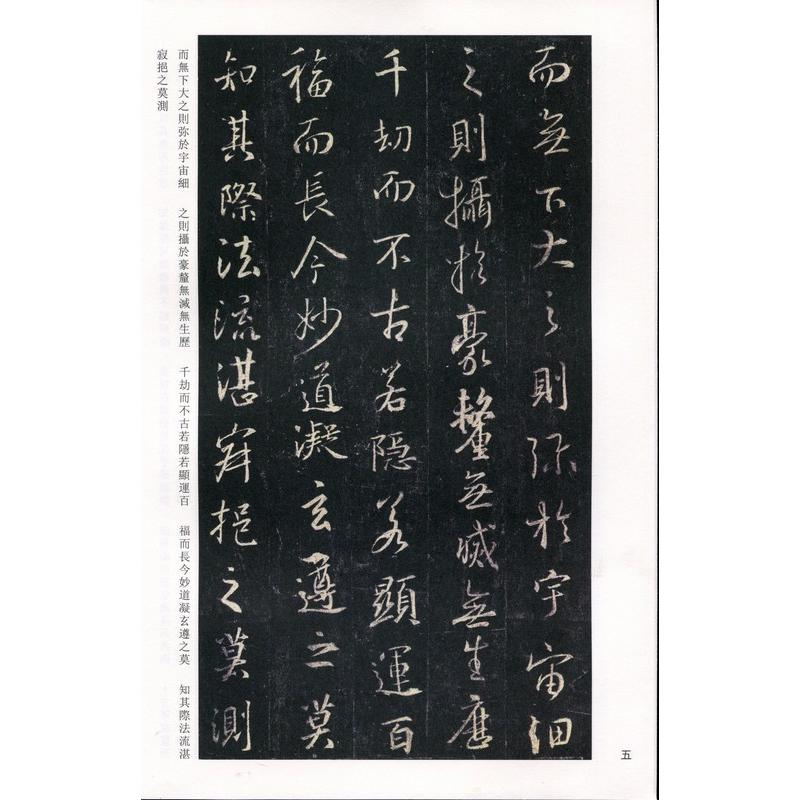 而無下大之則弥於宇宙細
之則攝於豪釐無滅無生歷
千劫而不古若隱若顯運百
福而長今妙道凝玄遵之莫
知其際法流湛寂挹之莫測
而無下大之則弥於宇宙細 之則攝於豪釐無滅無生歷 千劫而不古若隱若顯運百 福而長今妙道凝玄遵之莫 知其際法流湛
寂挹之莫測
五